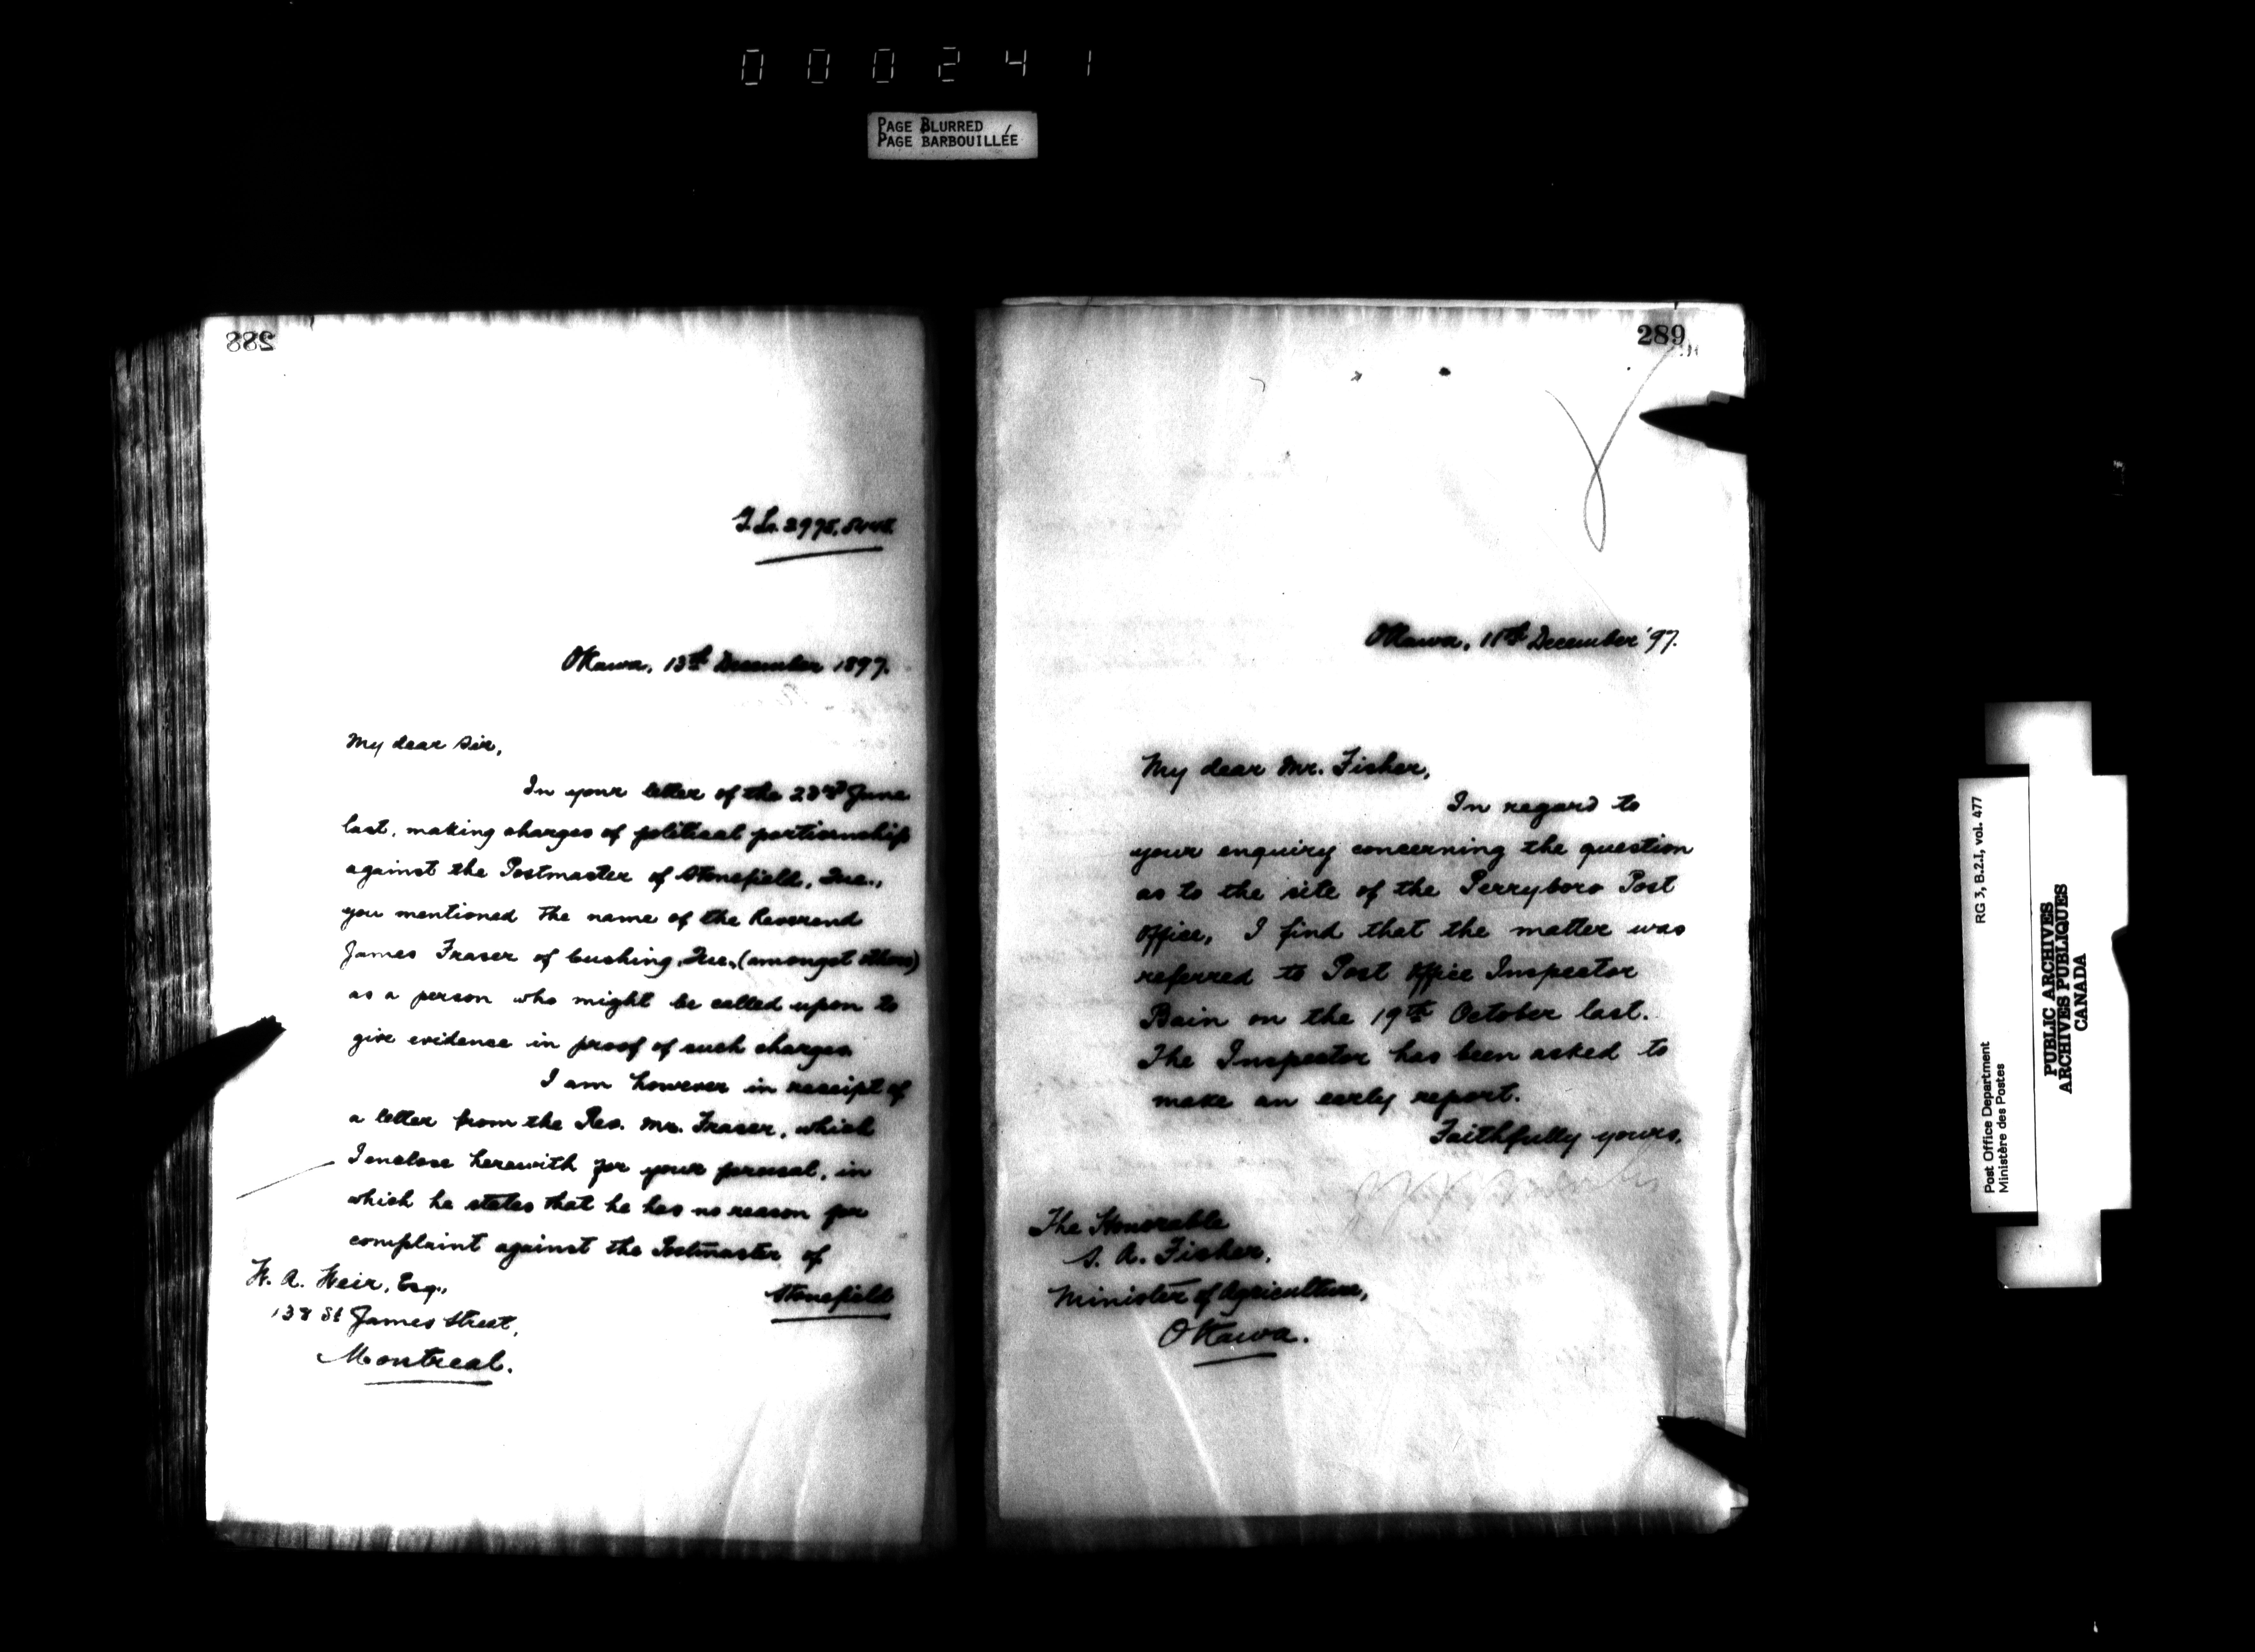 000241
PAGE BLURRED
PAGE BARBOUILLÉE
288
Ottawa, 13th December 1897.
My dear Sir,
In your letter of the 23rd June
last, making charges of political partizanship
against the Postmaster of Stonefield, Que.,
you mentioned the name of the Reverend
James Fraser of Cushing, Que., (amongst others)
as a person who might be called upon to
give evidence in proof of such charges.
I am however in receipt of
a letter from the Rev. Mr. Fraser, which
I enclose herewith for your perusal, in
which he states that he has no reason for
complaint against the Postmaster of
Stonefield
W. A. Weir, Esq.,
138 St James Street,
Montreal.
289
Ottawa, December '97.
My dear Mr. Fisher,
In regard to
your enquiry concerning the question
as to the site of the Perryboro Post
Office, I find that the matter was
referred to Post Office Inspector
Bain on the 19th October last.
The Inspector has been asked to
make an early report.
Faithfully yours,
The Honorable
S. A. Fisher,
Minister of Agriculture,
Ottawa.
RG 3, B.2.I, vol. 477
Post Office Department
Ministère des Postes
PUBLIC ARCHIVES
ARCHIVES PUBLIQUES
CANADA